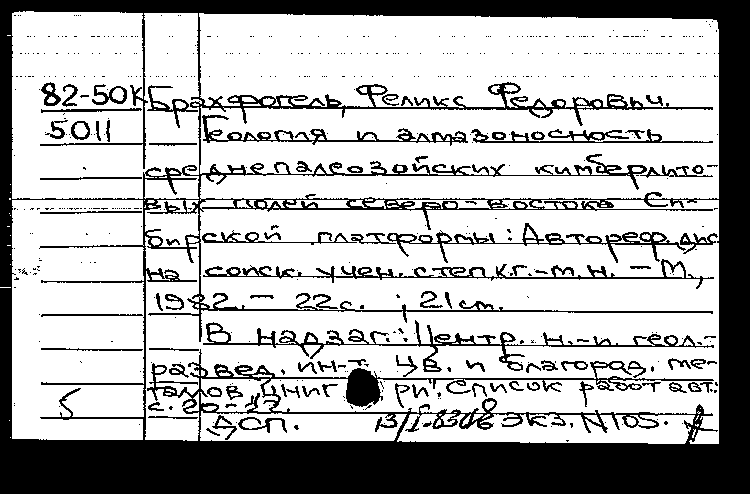 82-50К Брахфогель, Феликс Федорович.
5011 Геология и алмазоносность
среднепалеозойских кимберлито-
вых полей северо-востока Си-
бирской платформы: Автореф. дис
на соиск. учен. степ. к.г.-м.н. - М.,
1982. - 22 с. ; 21 см.
В надзаг.: Центр. н.-и. геол.-
развед. ин-т цв. и благород. ме-
таллов "ЦНИГРИ". Список работ авт.:
5 с. 20-22.
ДСП. ЭКЗ. N105.